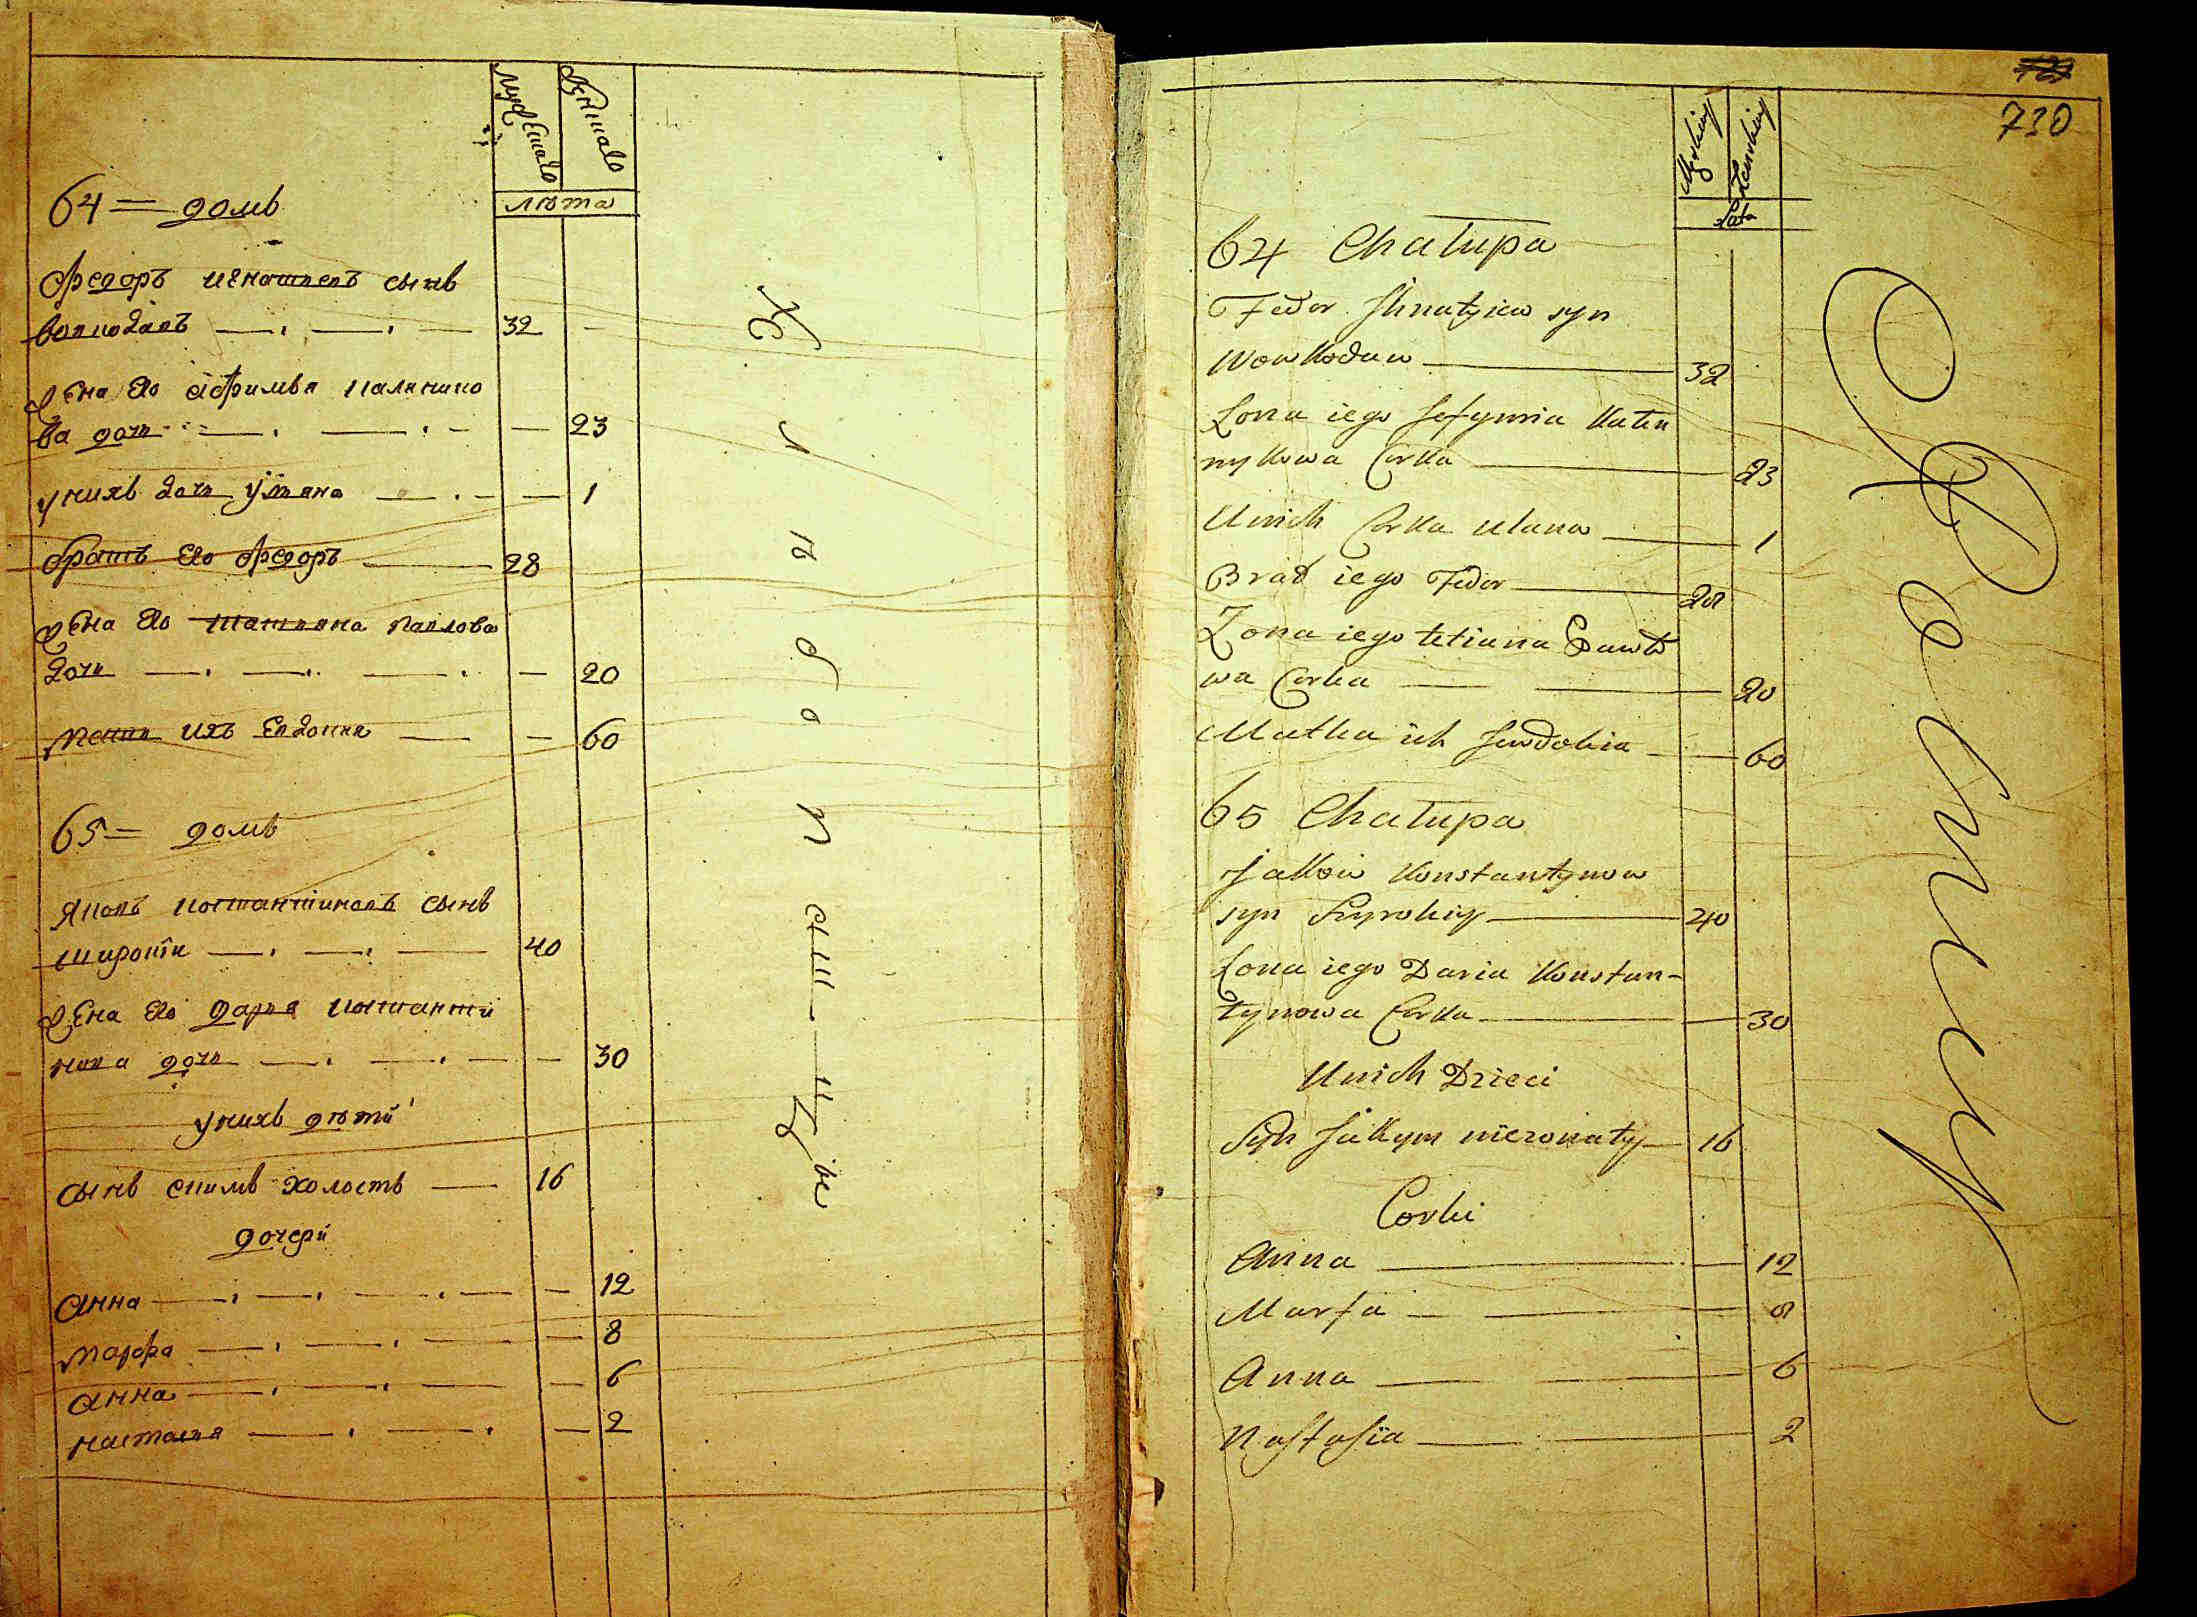 Мужеска
Женска
лѣта
64 = домъ
Федоръ игнатьевъ сынъ
вовкодавъ 32
жена его афимья калинико
ва дочь 23
у нихъ дочь ульяна 1
братъ его федоръ 28
жена его татьяна павлова
дочь 20
мать ихъ Евдокия 60
65 = домъ
яковъ костантиновъ сынъ
широкїи 40
жена его дарья костанти
нова дочь 30
у нихъ дѣти
сынъ екимъ холостъ 16
дочери
анна 12
марфа 8
анна 6
настасья 2
Хлѣбопашцы
730
Męskiey
Zenskiey
Lata
64 Chałupa
Fedor Ihnatyiew syn
Wowkodaw 32
Żona iego Jefymia Kałen
nykowa Corka 23
U nich Corka ulana 1
Brat iego Fedor 28
Żona iego tetiana Pawło
wa Corka 20
Matka ich Jewdokia 60
65 Chałupa
Jakow Konstantynow
syn Szyrokiy 40
Żona iego Daria Konstan-
tynowa Corka 30
U nich Dzieci
Syn Jakym nieżonaty 16
Corki
Anna 12
Marfa 8
Anna 6
Nastasia 2
Rolnicy